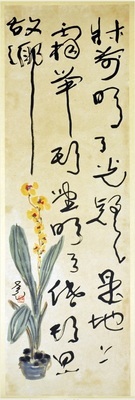 牀前明月光疑是地上
霜舉頭望明月低頭思
故鄉